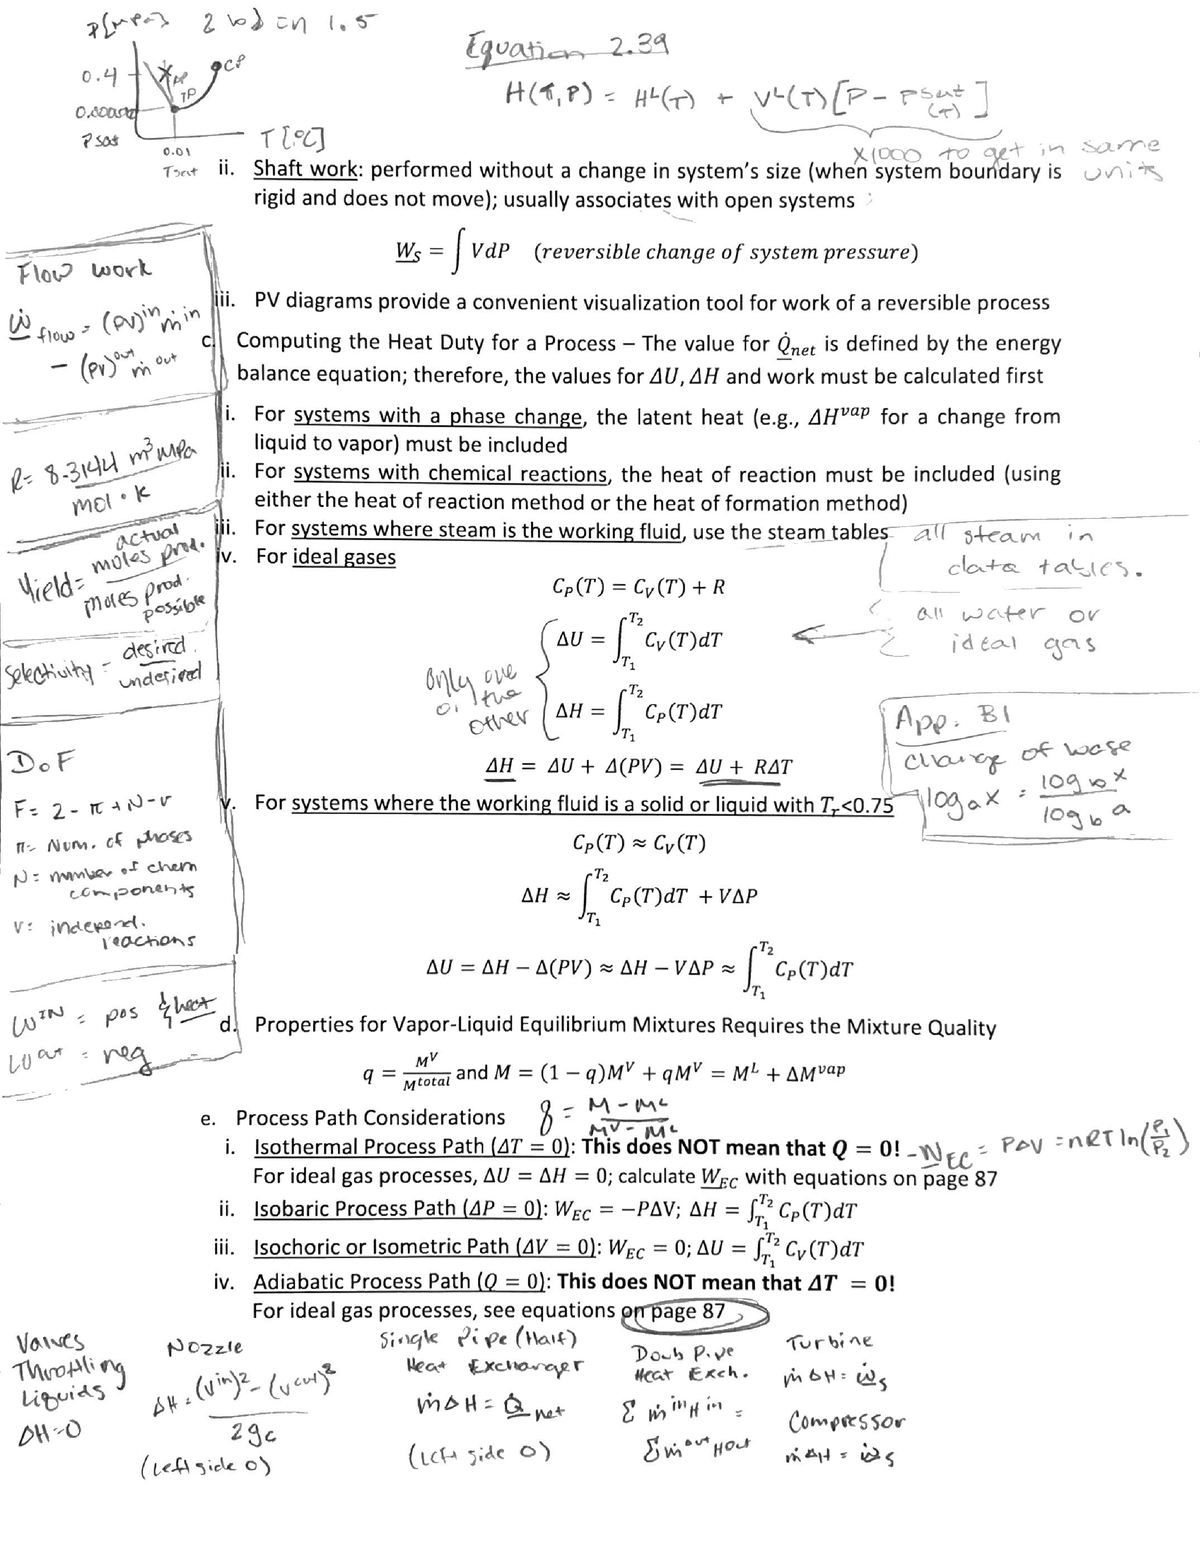 P[MPa] 2 in 1.5
Equation 2.39
0.4
CP
TP
H(T,P) = H^L(T) + V^L(T)[P - P^sat (T)]
P sat
0.01
T [°C]
Tsat
X1000 to get in same units
ii. Shaft work: performed without a change in system's size (when system boundary is
rigid and does not move); usually associates with open systems
W_S = ∫ VdP (reversible change of system pressure)
Flow work
Ẇ flow = (PV)^in ṁ^in
- (PV)^out ṁ^out
iii. PV diagrams provide a convenient visualization tool for work of a reversible process
c. Computing the Heat Duty for a Process – The value for Q̇_net is defined by the energy
balance equation; therefore, the values for ΔU, ΔH and work must be calculated first
i. For systems with a phase change, the latent heat (e.g., ΔH^vap for a change from
liquid to vapor) must be included
R = 8.3144 m³ MPa
mol • K
ii. For systems with chemical reactions, the heat of reaction must be included (using
either the heat of reaction method or the heat of formation method)
iii. For systems where steam is the working fluid, use the steam tables
all steam in
data tables.
iv. For ideal gases
Yield = actual moles prod.
moles prod. possible
C_P(T) = C_V(T) + R
ΔU = ∫_{T_1}^{T_2} C_V(T)dT
all water or
ideal gas
Selectivity = desired
undesired
Only one
or the
other
ΔH = ∫_{T_1}^{T_2} C_P(T)dT
ΔH = ΔU + Δ(PV) = ΔU + RΔT
App. B1
Change of base
log_a x = log_b x
log_b a
v. For systems where the working fluid is a solid or liquid with T_r<0.75
DoF
F = 2 - π + N - r
π = Num. of phases
N = number of chem
components
r = independ.
reactions
C_P(T) ≈ C_V(T)
ΔH ≈ ∫_{T_1}^{T_2} C_P(T)dT + VΔP
ΔU = ΔH − Δ(PV) ≈ ΔH − VΔP ≈ ∫_{T_1}^{T_2} C_P(T)dT
W^IN = pos & heat
W^out = neg
d. Properties for Vapor-Liquid Equilibrium Mixtures Requires the Mixture Quality
q = M^V / M^total and M = (1 − q)M^V + qM^V = M^L + ΔM^vap
e. Process Path Considerations
q = M - M^L
M^V - M^L
i. Isothermal Process Path (ΔT = 0): This does NOT mean that Q = 0!
-W_EC = PΔV = nRT ln(P_1/P_2)
For ideal gas processes, ΔU = ΔH = 0; calculate W_EC with equations on page 87
ii. Isobaric Process Path (ΔP = 0): W_EC = −PΔV; ΔH = ∫_{T_1}^{T_2} C_P(T)dT
iii. Isochoric or Isometric Path (ΔV = 0): W_EC = 0; ΔU = ∫_{T_1}^{T_2} C_V(T)dT
iv. Adiabatic Process Path (Q = 0): This does NOT mean that ΔT = 0!
For ideal gas processes, see equations on page 87
Valves
Throttling
Liquids
ΔH=0
Nozzle
ΔH = (v^in)² - (v^out)²
2gc
(Left side 0)
Single Pipe (Half)
Heat Exchanger
ṁΔH = Q̇ net
(Left side 0)
Doub Pipe
Heat Exch.
Σ ṁ^in H^in =
Σ ṁ^out H^out
Turbine
ṁΔH = Ẇ_s
Compressor
ṁΔH = Ẇ_s